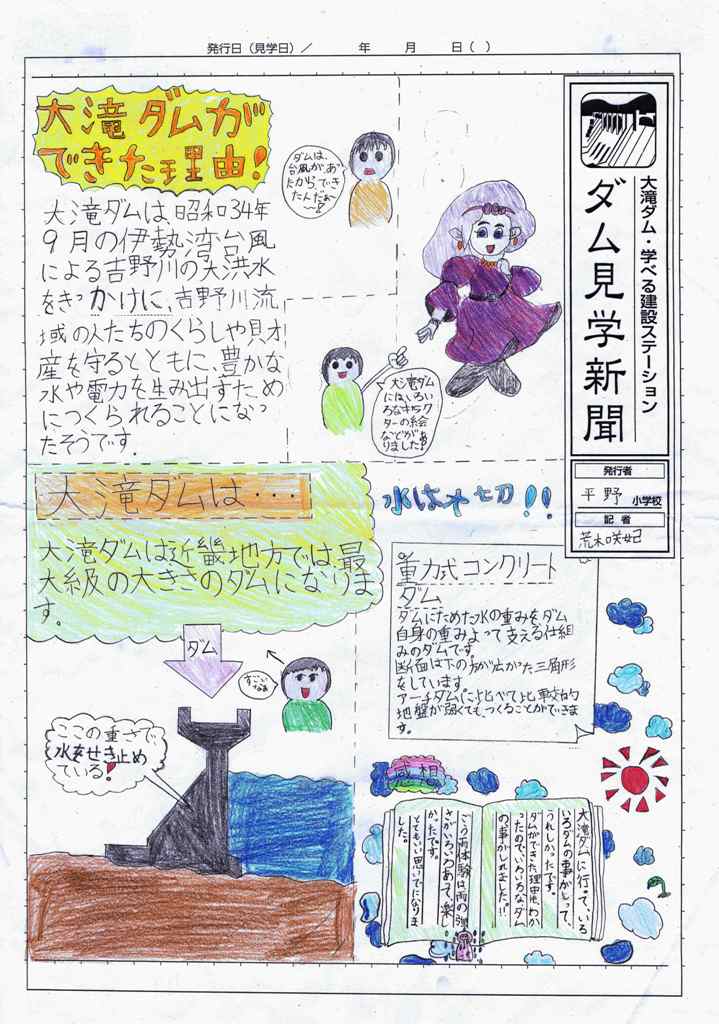 発行日(見学日)/ 年 月 日( )
大滝ダム・学べる建設ステーション
ダム見学新聞
発行者
平野 小学校
記者
荒木咲妃
大滝ダムが
できた理由!
大滝ダムは昭和34年
9月の伊勢湾台風
による吉野川の大洪水
をきっかけに、吉野川流
域の人たちのくらしや財
産を守るとともに、豊かな
水や電力を生み出すため
につくられることになっ
たそうです。
ダムは、
台風があっ
たからでき
たんだぁ
〜
大滝ダム
にはいろい
ろなキャラク
ターの絵
などがあ
りました!
大滝ダムは・・・
大滝ダムは近畿地方では最
大級の大きさのダムになりま
す。
水は大切!!
重力式コンクリート
ダム
ダムにためた水の重みをダム
自身の重みよって支える仕組
みのダムです。
断面は下の方が広がった三角形
をしています
アーチダムに比べて比較的
地盤が弱くても、つくることができま
す。
ダム
すごい
なぁ
ここの重さで、
水をせき止め
ている!
感想
大滝ダムに行って、いろ
いろダムの事がしって、
うれしかったです。
ダムができた理由もわか
ったのでいろいろなダム
の事がしれました!!
ごう雨体験は雨の強
さがいろいろあって、楽し
かったです。
とてもいい思いでになりま
した。